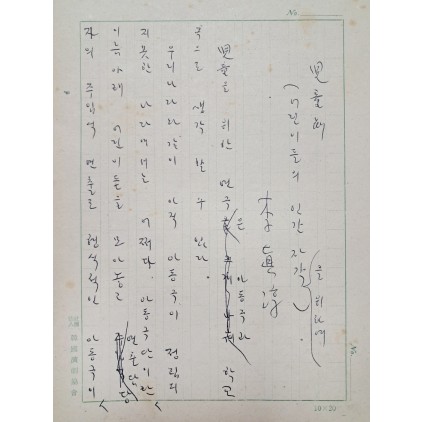 No.
兒童劇
(어린이들의 인간자각) 을 위하여
李眞淳
兒童을 위한 연극은 아동극과 학교
극으로 생각할 수 있다.
우리나라같이 아직 아동극이 정립되
지 못한 나라에서는 어쩌다. 아동극단이란
이름아래 어린이들을 모아놓고 연출담당
자의 주입적 연출로 형식적인 아동극이
10×20